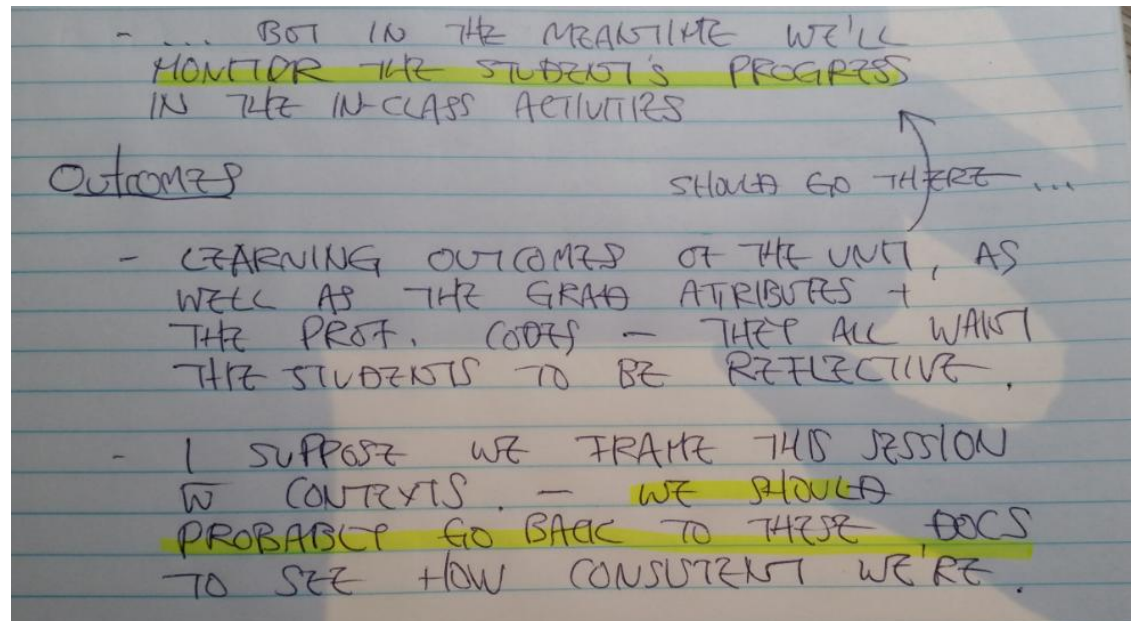 - ... BOT IN THE MEANTIME WE'LL
MONITOR THE STUDENT'S PROGRESS
IN THE IN-CLASS ACTIVITIES
Outcomes
SHOULD GO THERE ...
- LEARNING OUTCOMES OF THE UNIT, AS
WELL AS THE GRAD ATTRIBUTES +
THE PROF. CODES - THEY ALL WANT
THE STUDENTS TO BE REFLECTIVE.
- I SUPPOSE WE FRAME THIS SESSION
W CONTEXTS. - WE SHOULD
PROBABLY GO BACK TO THESE DOCS
TO SEE HOW CONSISTENT WE'RE.